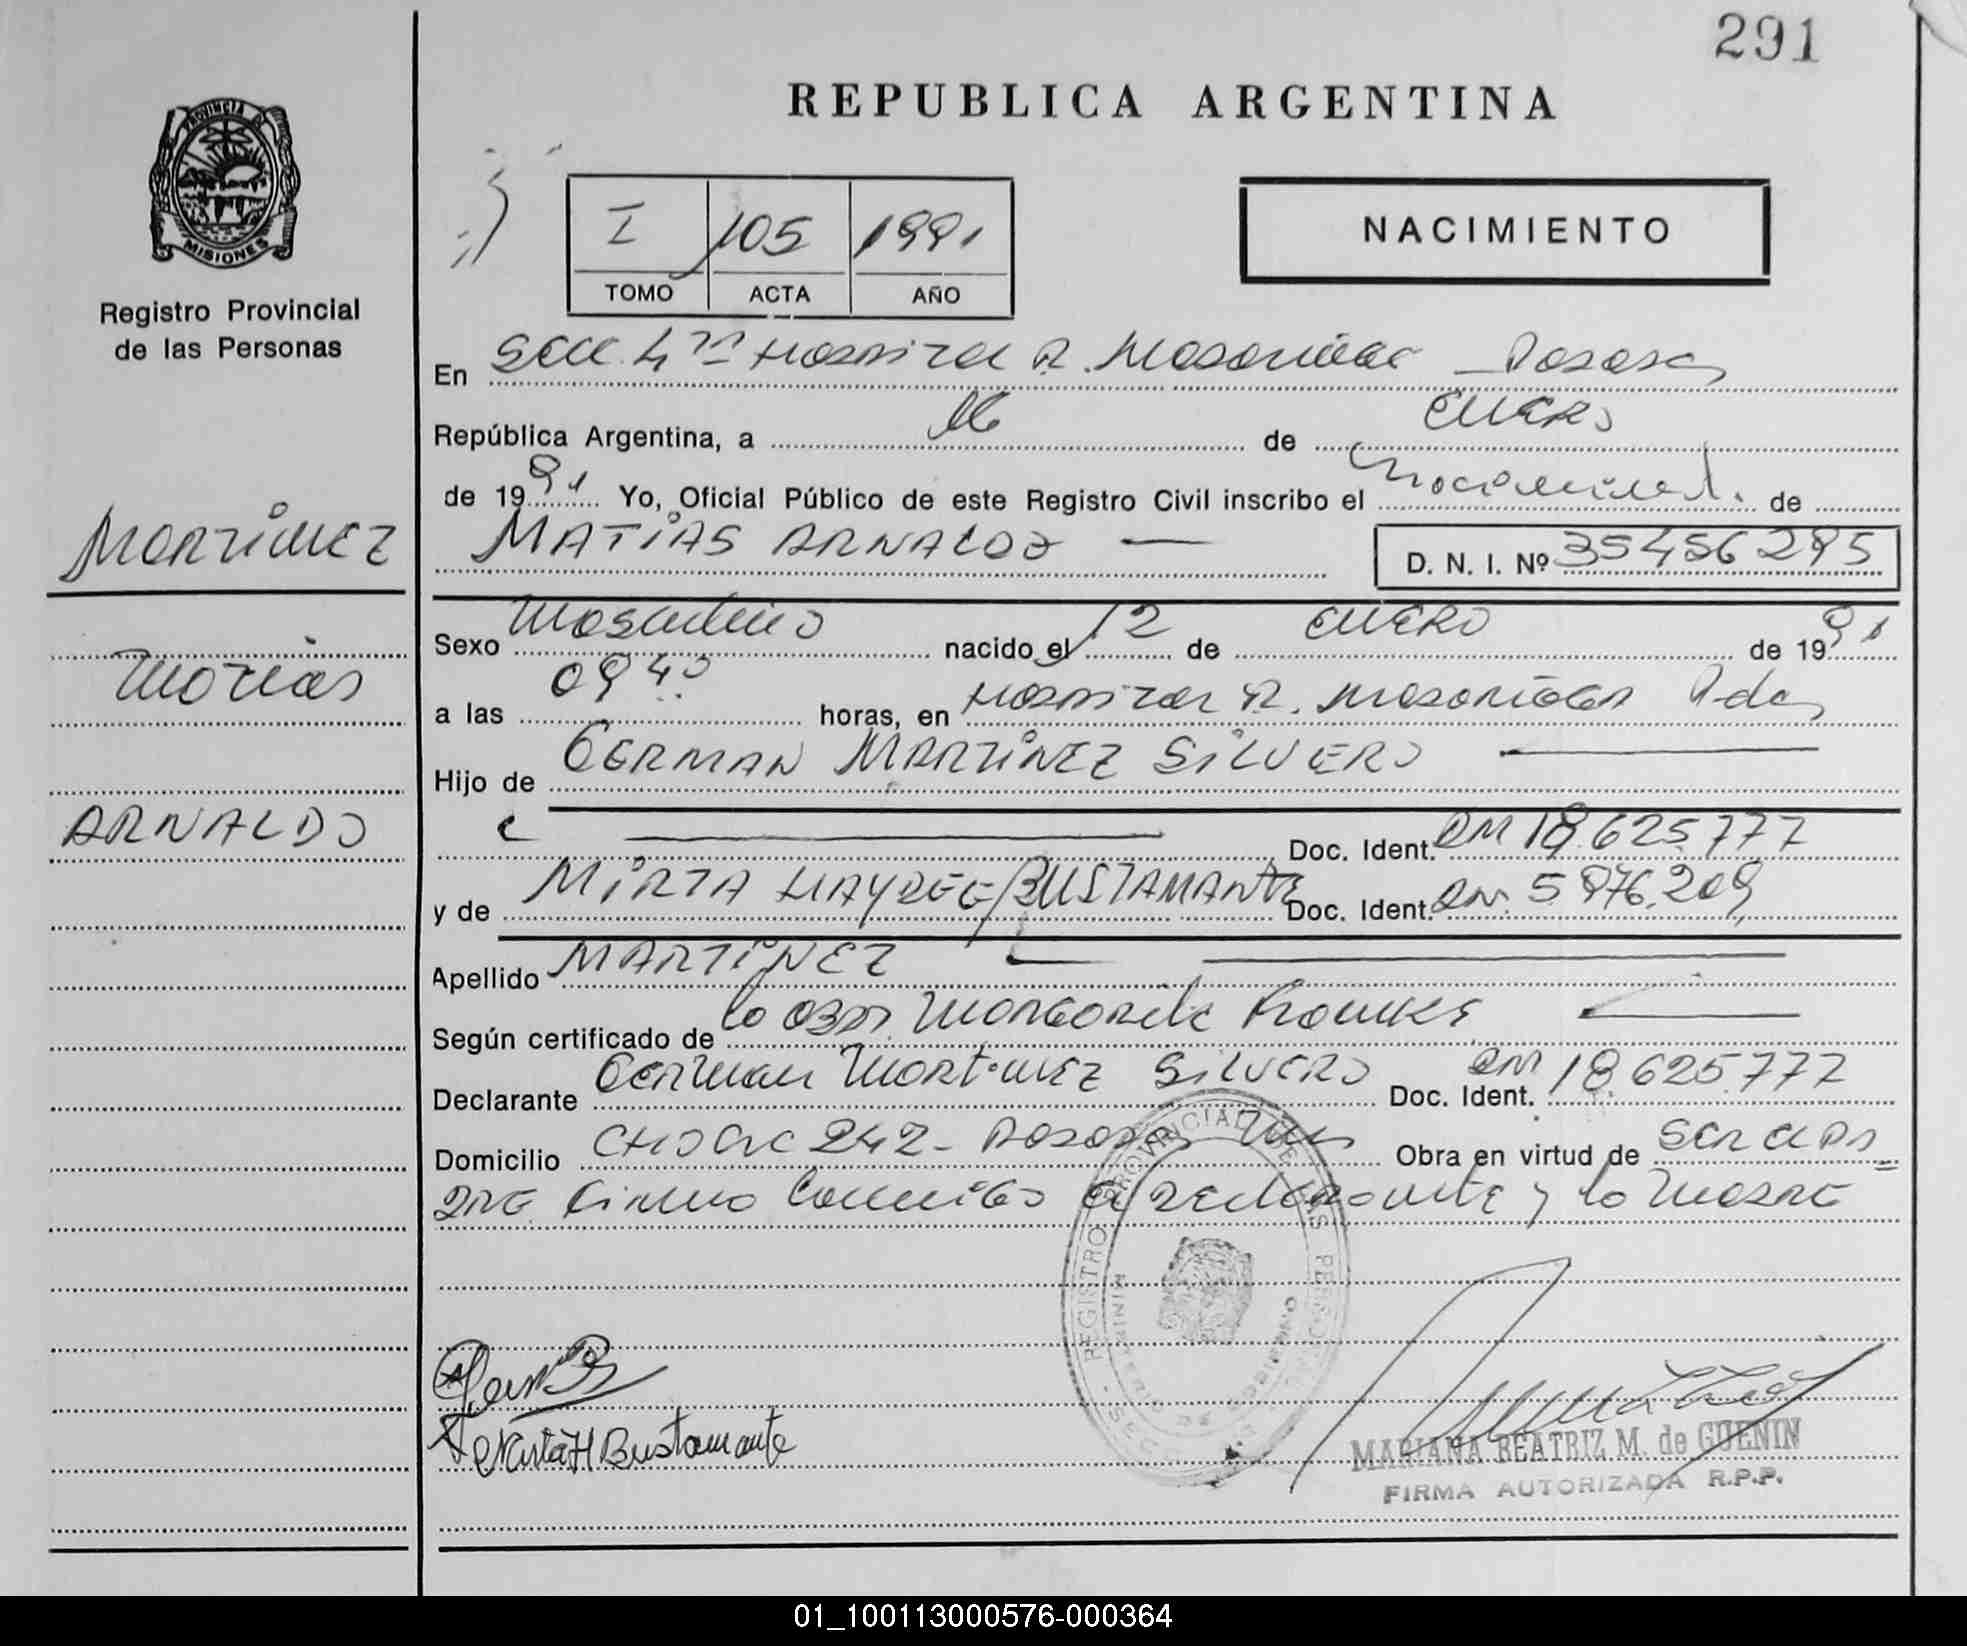 291
REPUBLICA ARGENTINA
PROVINCIA DE
MISIONES
Registro Provincial
de las Personas
I 105 1991
TOMO ACTA AÑO
NACIMIENTO
En Secc 4ta Hospital R. Madariaga _ Posadas
República Argentina, a 16 de ENERO
de 1991 Yo, Oficial Público de este Registro Civil inscribo el nacimiento de
MATIAS ARNALDO — D. N. I. Nº 35456295
MARTINEZ
Matias
ARNALDO
Sexo Masculino nacido el 12 de ENERO de 1991
a las 0940 horas, en Hospital R. Madariaga Pdas
Hijo de GERMAN MARTINEZ SILVERO
Doc. Ident. DNI 18.625.777
y de MIRTA HAYDEE BUSTAMANTE Doc. Ident. DNI 5.976.209
Apellido MARTINEZ
Según certificado de la Obst. Margarita
Declarante German Martinez SILVERO Doc. Ident. DNI 18.625.777
Domicilio 242 - Posadas Mnes Obra en virtud de ser el Pa=
dre Firma Conmigo el declarante y la Madre
REGISTRO PROVINCIAL DE LAS PERSONAS
MINISTERIO DE GOBIERNO
Mirta H Bustamante
MARIANA BEATRIZ M. de GUENIN
FIRMA AUTORIZADA R.P.P.
01_100113000576-000364